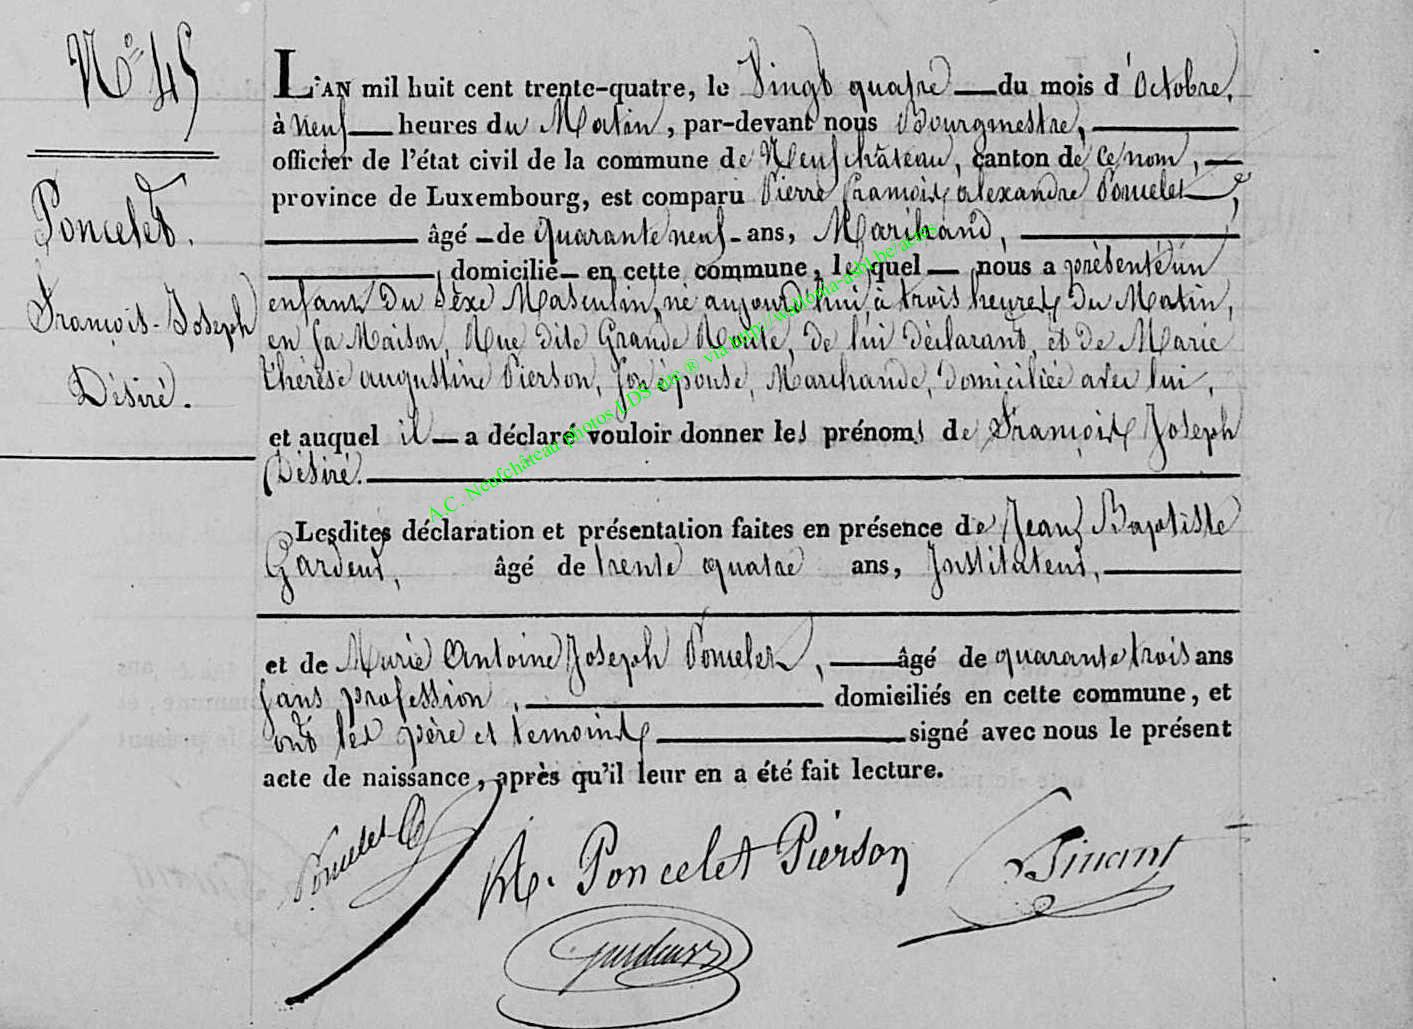 N° 45
Poncelet.
François-Joseph
Désiré.
L'AN mil huit cent trente-quatre, le Vingt quatre du mois d'Octobre,
à Neuf heures du Matin, par-devant nous Bourgmestre,
officier de l'état civil de la commune de Neufchâteau, canton de ce nom,
province de Luxembourg, est comparu Pierre François Alexandre Poncelet,
âgé de quarante neuf ans, Marchand,
domicilié en cette commune, lequel nous a présenté un
enfant du Sexe Masculin, né aujourd'hui, à trois heures du Matin,
en sa Maison, Rue dite Grande Route, de lui déclarant, et de Marie
thérèse augustine Pierson, son épouse, Marchande, domiciliée avec lui,
et auquel il a déclaré vouloir donner les prénoms de François Joseph
Désiré.
Lesdites déclaration et présentation faites en présence de Jean Baptiste
Gardeur, âgé de trente quatre ans, Instituteur,
et de Marie Antoine Joseph Poncelet, âgé de quarante trois ans
sans profession, domiciliés en cette commune, et
ont les père et temoins signé avec nous le présent
acte de naissance, après qu'il leur en a été fait lecture.
Poncelet
Poncelet Pierson
Gardeur
A.C. Neufchâteau photos LDS via http://wallonia-asbl.be/actes